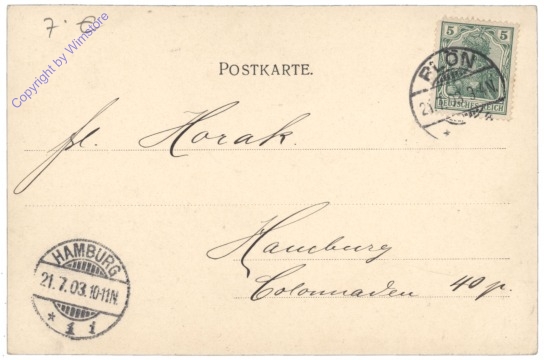 7. 6
Copyright by Wimstore
POSTKARTE.
5 5
DEUTSCHES REICH
PLÖN
21.
fl. Horak.
Hamburg
Colonnaden 40 p.
HAMBURG
21.7.03.10-11N.
* 1 i